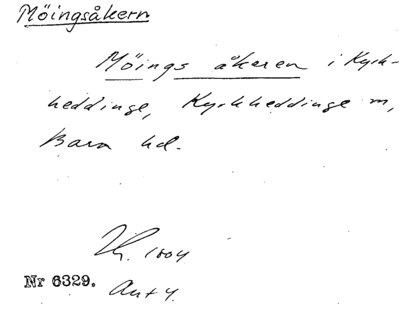 Möingsåkern
Möings åkeren i Kyrk-
heddinge, Kyrkheddinge sn,
Bara hd.
1004
Nr 6329. Ant 4.